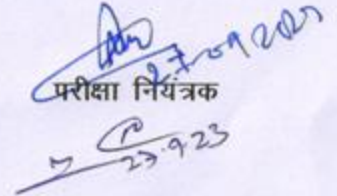 27-09-2023
परीक्षा नियंत्रक
27.9.23